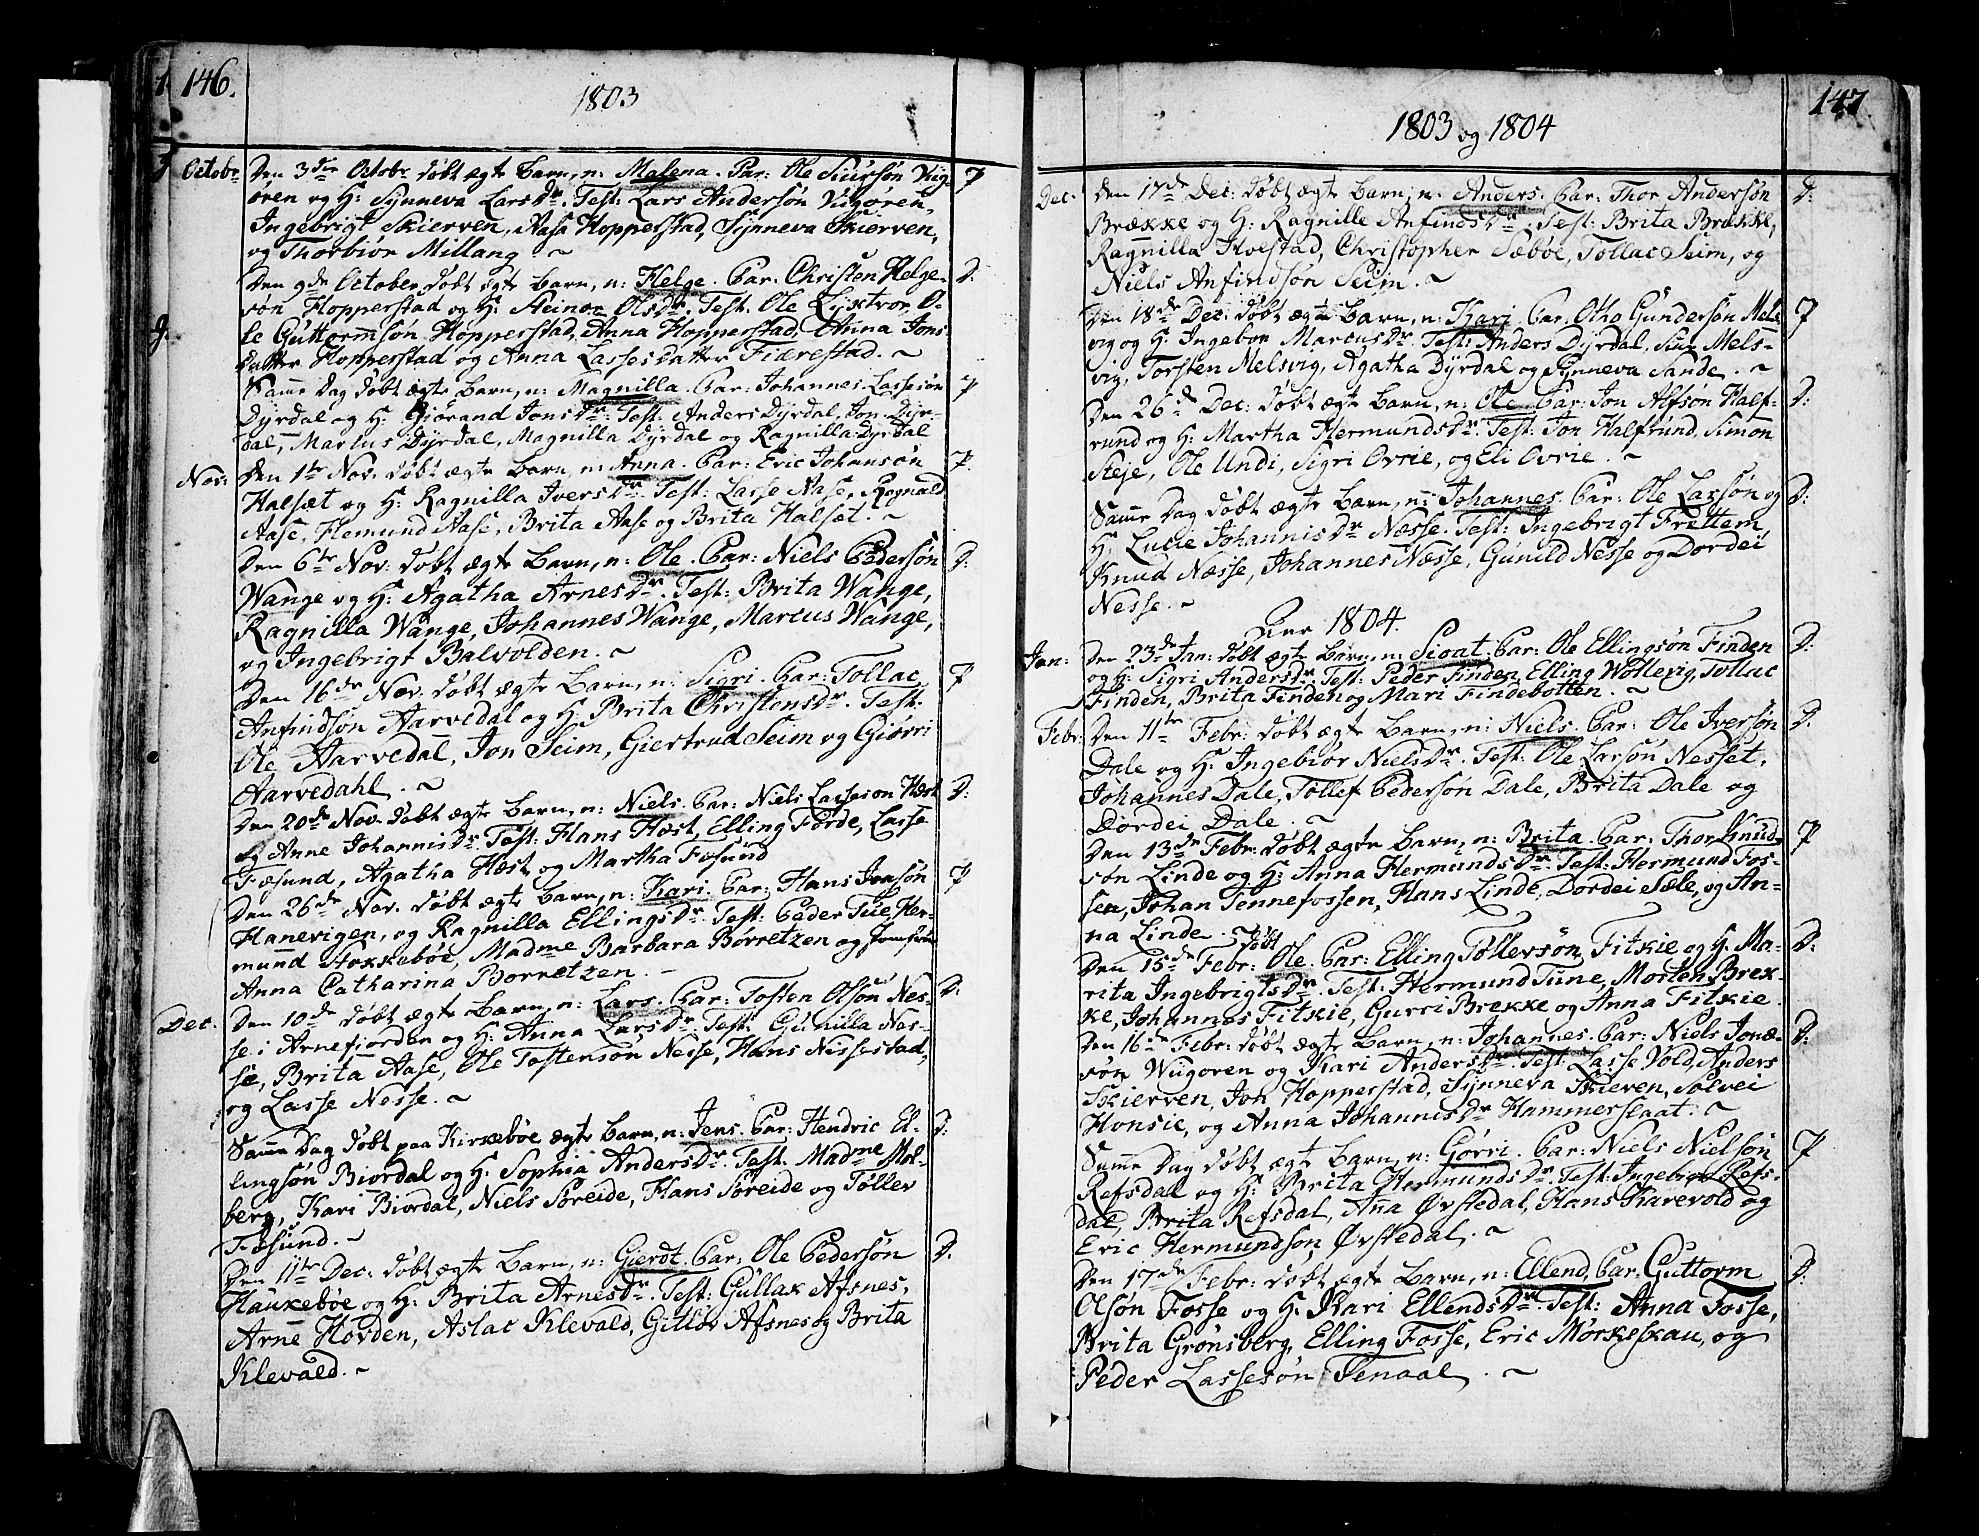 146.
1803
Octobr Den 3die Octobr. døbt ægte Barn, n: Malena. Par: Ole Siursøn Vug- P
øren og H: Synneva Larsdr. Test: Lars Andersøn Vugøren,
Ingebrigt Skierven, Aasa Hopperstad, Synneva Skierven,
og Thorbiør Millang ~
Den 9de October døbt ægte Barn, n: Helge. Par: Christen Helge- D:
søn Hopperstad og H: Olsdr. Test. Ole O-
le Guttormsøn Hopperstad, Anna Hopperstad, Anna Jons-
datter Hopperstad og Anna Lassesdatter Fiærestad. ~
Samme Dag døbt ægte Barn, n: Magnilla. Par: Johannes Lassesøn P
Dyrdal og H: Giørand Jonsdr. Test: Anders Dyrdal, Jon Dyr-
dal, Marcus Dyrdal, Magnilla Dyrdal og Ragnilla Dyrdal
Nov: Den 1te Nov. døbt ægte Barn, n: Anna. Par: Eric Johansøn P.
Halsæt og H: Ragnilla Iversdr. Test: Lasse Aase, Rognald
Aase, Hemund Aase, Brita Aase og Brita Halsæt. ~
Den 6te Nov: døbt ægte Barn, n: Ole. Par: Niels Pedersøn D:
Wange og H: Agatha Arnesdr. Test: Brita Wange,
Ragnilla Wange, Johannes Wange, Marcus Wange,
og Ingebrigt Balvolden. ~
Den 16de Nov. døbt ægte Barn, n: Sigri. Par: Tollac P
Anfindsøn Aarvedal og H: Brita Christensdr. Test:
Ole Aarvedal, Jon Seim, Giertrud Seim og Giørri
Aarvedahl. ~
Den 20de Nov. døbt ægte Barn, n: Niels. Par: Niels Lassesøn Hæst D:
og Anne Johannisdr. Test: Hans Hæst, Elling Førde, Lasse
Fæsund, Agatha Hæst og Martha Fæsund
Den 26de Nov. døbt ægte Barn, n: Kari. Par: Hans Jonsøn P
Hanevigen, og Ragnilla Ellingsdr. Test: Peder Tue, Her-
mund Stokkebøe, Madme Barbara Børretzen og Jomfru
Anna Catharina Borretzen. ~
Dec. Den 10de døbt ægte Barn, n: Lars. Par: Tosten Olsøn Nes- D:
se i Arnefiorden og H: Anna Larsdr. Test: Gunilla Nes-
se, Brita Aase, Ole Tostensøn Nesse, Hans Nissestad,
og Lasse Nesse. ~
Samme Dag døbt paa Kirkebøe ægte Barn, n: Jens. Par: Hendric El- D:
lingsøn Biordal og H: Sophia Andersdr. Test. Madme Mol-
berg, Kari Biordal, Niels Søreide, Hans Søreide og Tøllev
Fæsund. ~
Den 11te Dec: døbt ægte Barn, n: Gierdt. Par: Ole Pedersøn D.
Haukebøe og H: Brita Arnesdr. Test: Gullak Afsnes,
Arne Hovden, Aslac Klevald, Gitløv Afsnes og Brita
Klevald. ~
147
1803 og 1804
Dec: Den 17de Dec: døbt ægte Barn, n: Anders. Par: Thor Andersøn D:
Brække og H: Ragnille Anfindsdr. Test: Brita Brække,
Ragnilla Hvestad, Christopher Sæbøe, Tollac Seim, og
Niels Anfindsøn Seim. ~
Den 18de Dec: døbt ægte Barn, n: Kari. Par. Otho Gundersøn Mels- P
vig og H. Ingebor Marcusdr. Test: Anders Dyrdal, Siur Mels-
vig, Torsten Melsvig, Agatha Dyrdal og Synneva Sande. ~
Den 26de Dec: døbt ægte Barn, n: Ole. Par: Jon Alfsøn Half- D:
rund og H: Martha Hermundsdr. Test: Jon Halfrund, Simon
Steje, Ole Undi, Sigri Ovrie, og Eli Ovrie. ~
Samme Dag døbt ægte Barn, n: Johannes. Par: Ole Larsøn og D:
H: Lucie Johannisdr Næsse. Test: Ingebrigt Frettem,
Knud Næsse, Johannes Næsse, Gunild Nesse og Dordei
Nesse. ~
Anno 1804.
Jan: Den 23de Jan: døbt ægte Barn, n: Sioat. Par: Ole Ellingsøn Finden D:
og H: Sigri Andersdr. Test: Peder Finden, Elling Wollevig, Tollac
Finden, Brita Finden og Mari Findebotten. ~
Febr: Den 11te Febr: døbt ægte Barn, n: Niels. Par: Ole Iversøn D:
Dale og H: Ingebiør Nielsdr. Test: Ole Larsøn Nesset,
Johannes Dale, Tollef Pedersøn Dale, Brita Dale og
Dordei Dale. ~
Den 13de Febr: døbt ægte Barn, n: Brita. Par: Thor Knud- P
søn Linde og H: Anna Hermundsdr. Test: Hermund Fos-
sen, Johan Tennefossen, Hans Linde, Dordei Sæle, og An-
na Linde. ~
Den 15de Febr: døbt Ole. Par: Elling Tollevsøn Fitkie og H. Ma- D:
rita Ingebrigtsdr. Test: Hermund Tune, Morten Brek-
ke, Johannes Fitkie, Gurri Brekke og Anna Fitkie.
Den 16de Febr: døbt ægte Barn, n: Johannes. Par: Niels Jonæ- D:
søn Wugoren og Kari Andersdr. Test: Lasse Vold, Anders
Skierven, Jon Hopperstad, Synneva Skieven, Solvei
Honsie, og Anna Johannisdr Hammerslaat. ~
Samme Dag døbt ægte Barn, n: Gorri. Par: Niels Nielsøn P
Refsdal og H: Brita Hermundsdr. Test: Ingebrigt Refs-
dal, Brita Refsdal, Anna Øvstedal, Hans Karevold og
Eric Hermundsøn Øvstedal. ~
Den 17de Febr: døbt ægte Barn, n: Ellend. Par: Guttorm D:
Olsøn Fosse og H: Kari Ellendsdr. Test: Anna Fosse,
Brita Grønsberg, Elling Fosse, Eric Mørkeskau, og
Peder Lassesøn Tenaal. ~